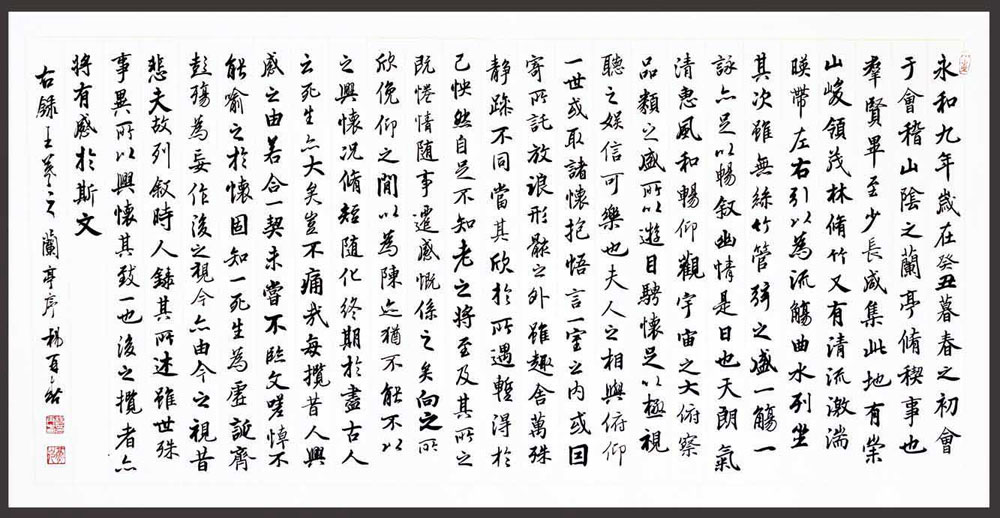 永和九年歲在癸丑暮春之初會
于會稽山陰之蘭亭脩稧事也
羣賢畢至少長咸集此地有崇
山峻領茂林脩竹又有清流激湍
暎帶左右引以為流觴曲水列坐
其次雖無絲竹管弦之盛一觴一
詠亦足以暢叙幽情是日也天朗氣
清惠風和暢仰觀宇宙之大俯察
品類之盛所以遊目騁懷足以極視
聽之娛信可樂也夫人之相與俯仰
一世或取諸懷抱悟言一室之內或因
寄所託放浪形骸之外雖趣舍萬殊
静躁不同當其欣於所遇暫得於
己怏然自足不知老之將至及其所之
既惓情随事遷感慨係之矣向之所
欣俛仰之間以為陳迹猶不能不以
之興懷況脩短随化終期於盡古人
云死生亦大矣豈不痛哉每攬昔人興
感之由若合一契未嘗不臨文嗟悼不
能喻之於懷固知一死生為虛誕齊
彭殤為妄作後之視今亦由今之視昔
悲夫故列叙時人錄其所述雖世殊
事異所以興懷其致一也後之攬者亦
將有感於斯文
右錄王羲之蘭亭序 楊